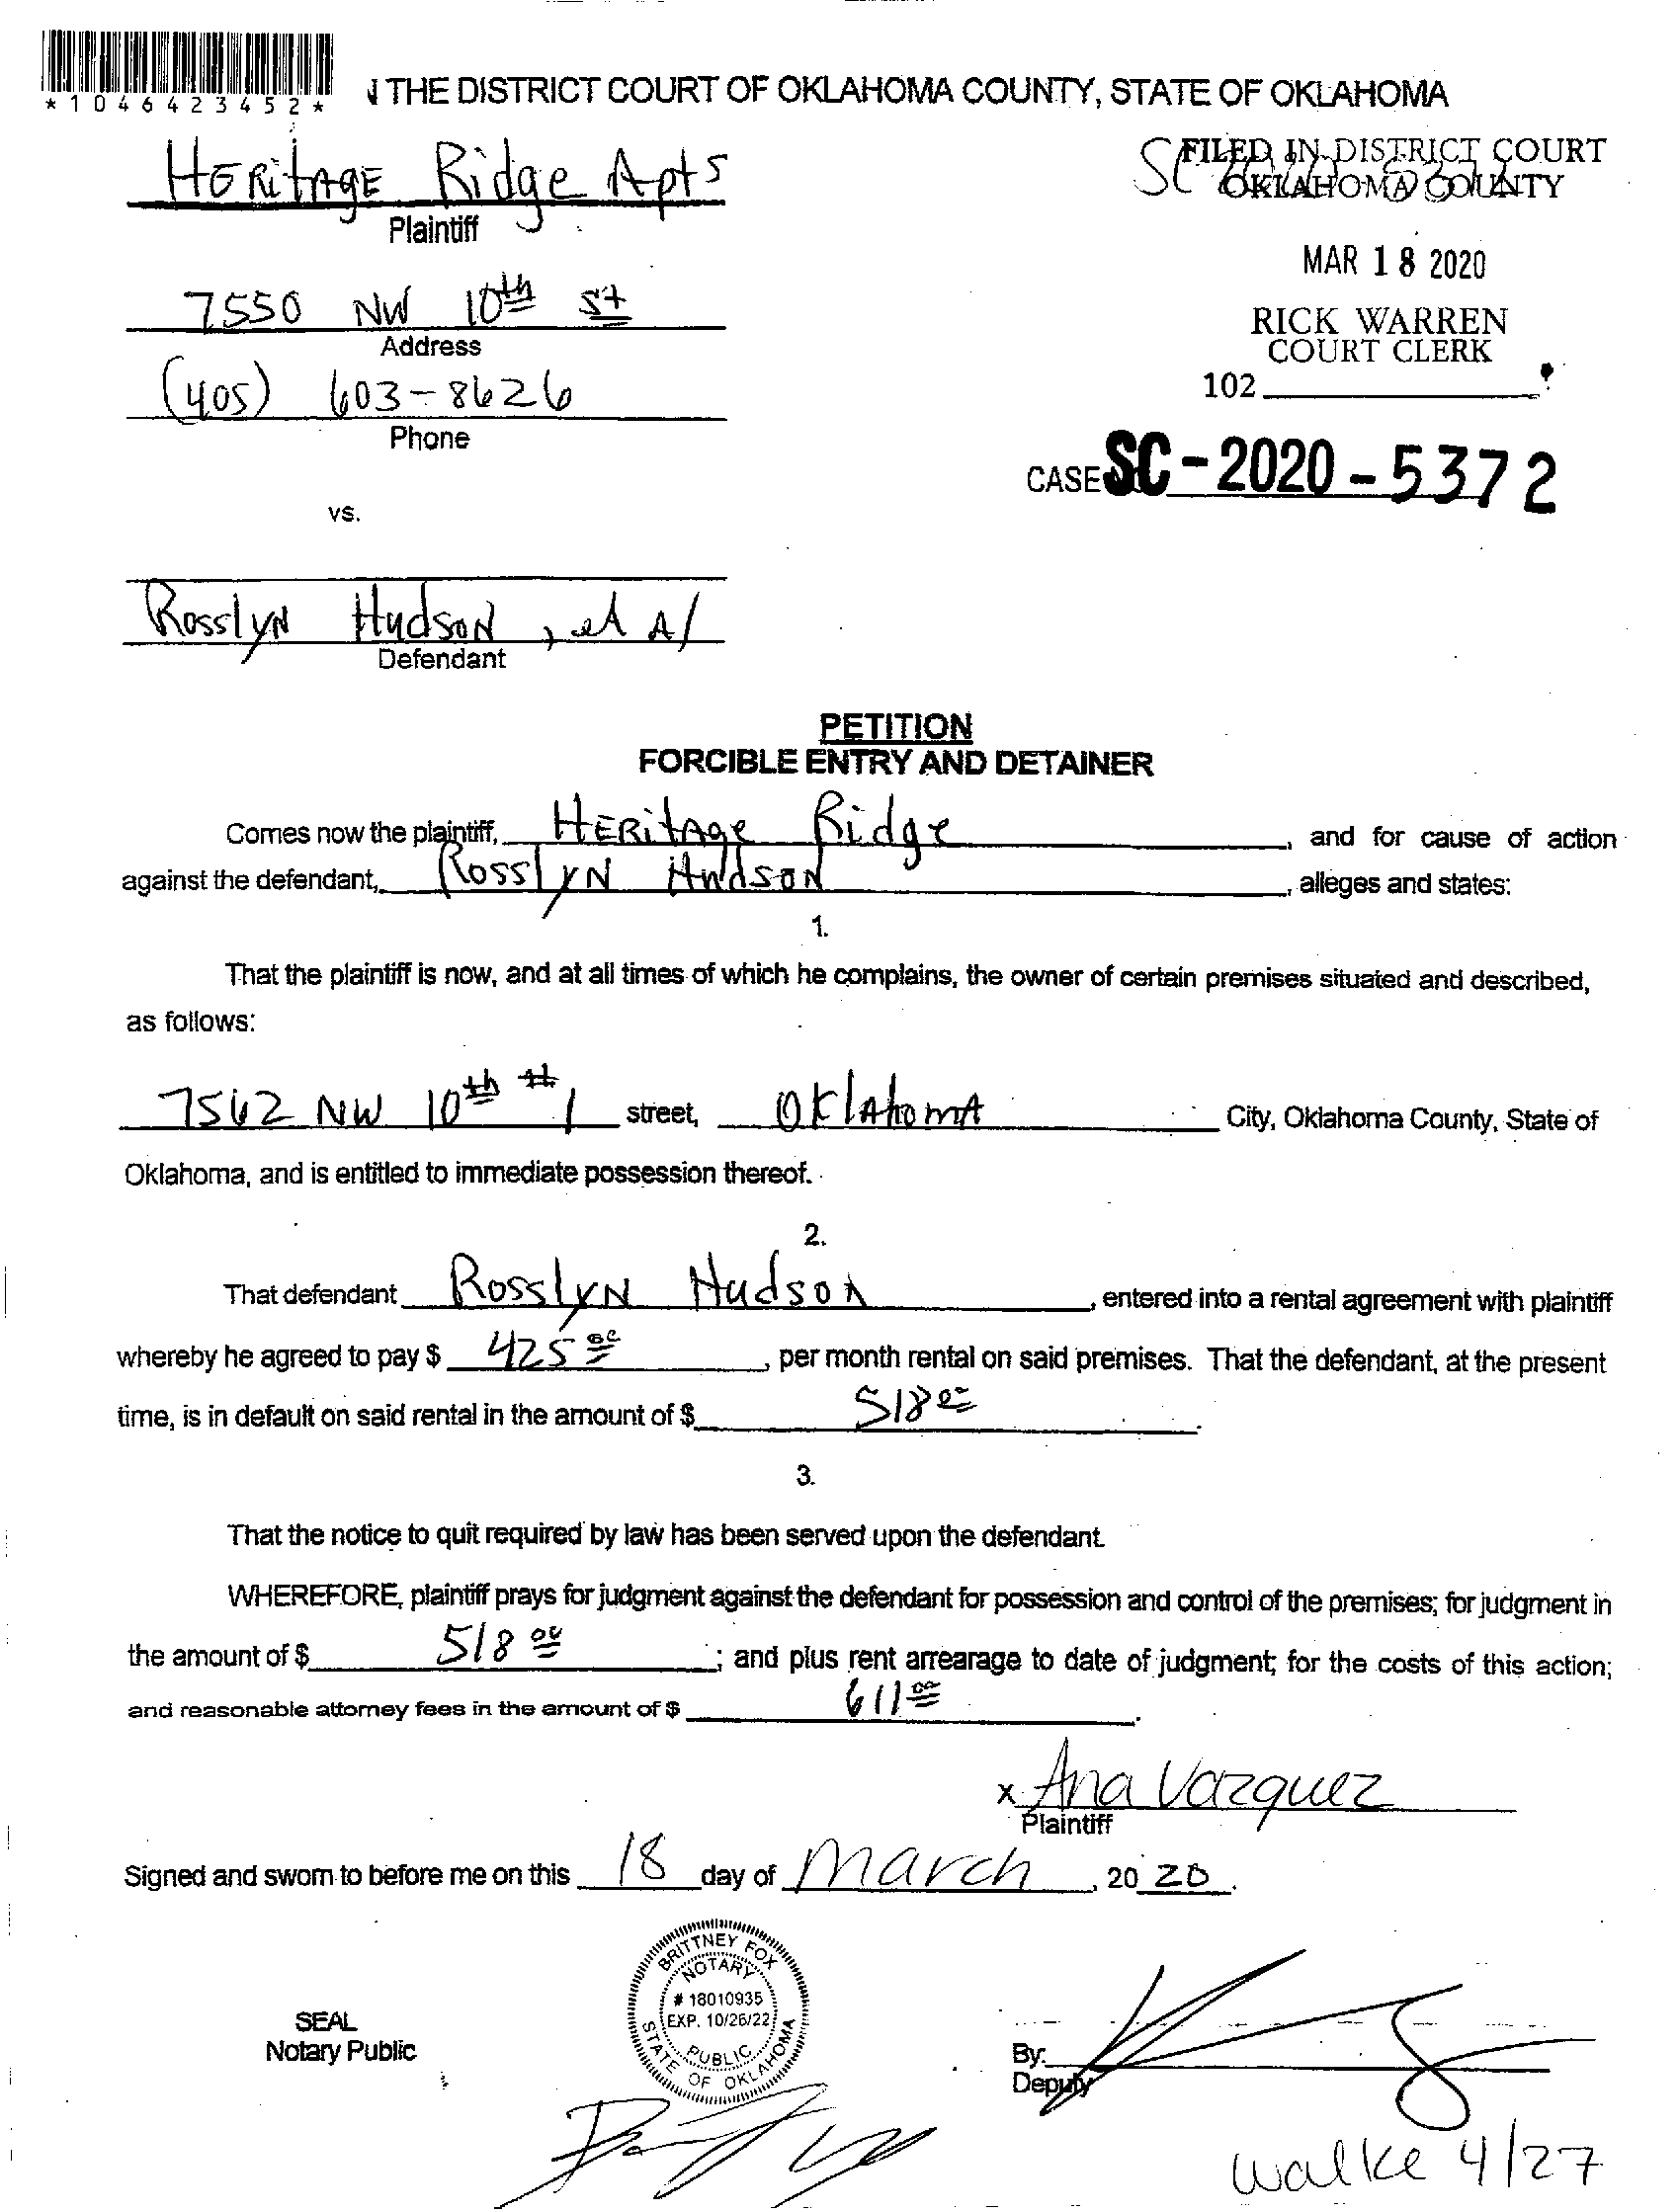 *1046423452*
N THE DISTRICT COURT OF OKLAHOMA COUNTY, STATE OF OKLAHOMA
HERitAGE Ridge Apts
Plaintiff
FILED IN DISTRICT COURT
OKLAHOMA COUNTY
MAR 18 2020
RICK WARREN
COURT CLERK
102
7550 NW 10th St
Address
(405) 603-8626
Phone
CASE SC-2020-5372
vs.
Rosslyn Hudson, et Al
Defendant
PETITION
FORCIBLE ENTRY AND DETAINER
Comes now the plaintiff, HERitAge Ridge, and for cause of action
against the defendant, Rosslyn Hudson, alleges and states:
1.
That the plaintiff is now, and at all times of which he complains, the owner of certain premises situated and described,
as follows:
7562 NW 10th #1 street, OklAhomA City, Oklahoma County, State of
Oklahoma, and is entitled to immediate possession thereof.
2.
That defendant Rosslyn Hudson, entered into a rental agreement with plaintiff
whereby he agreed to pay $ 425 00, per month rental on said premises. That the defendant, at the present
time, is in default on said rental in the amount of $ 518 00.
3.
That the notice to quit required by law has been served upon the defendant.
WHEREFORE, plaintiff prays for judgment against the defendant for possession and control of the premises; for judgment in
the amount of $ 518 00; and plus rent arrearage to date of judgment; for the costs of this action;
and reasonable attorney fees in the amount of $ 611 00.
x Ana Vazquez
Plaintiff
Signed and sworn to before me on this 18 day of March, 20 20.
BRITTNEY FOX
NOTARY
# 18010935
EXP. 10/26/22
PUBLIC
STATE OF OKLAHOMA
SEAL
Notary Public
By:
Deputy
Walke 4/27